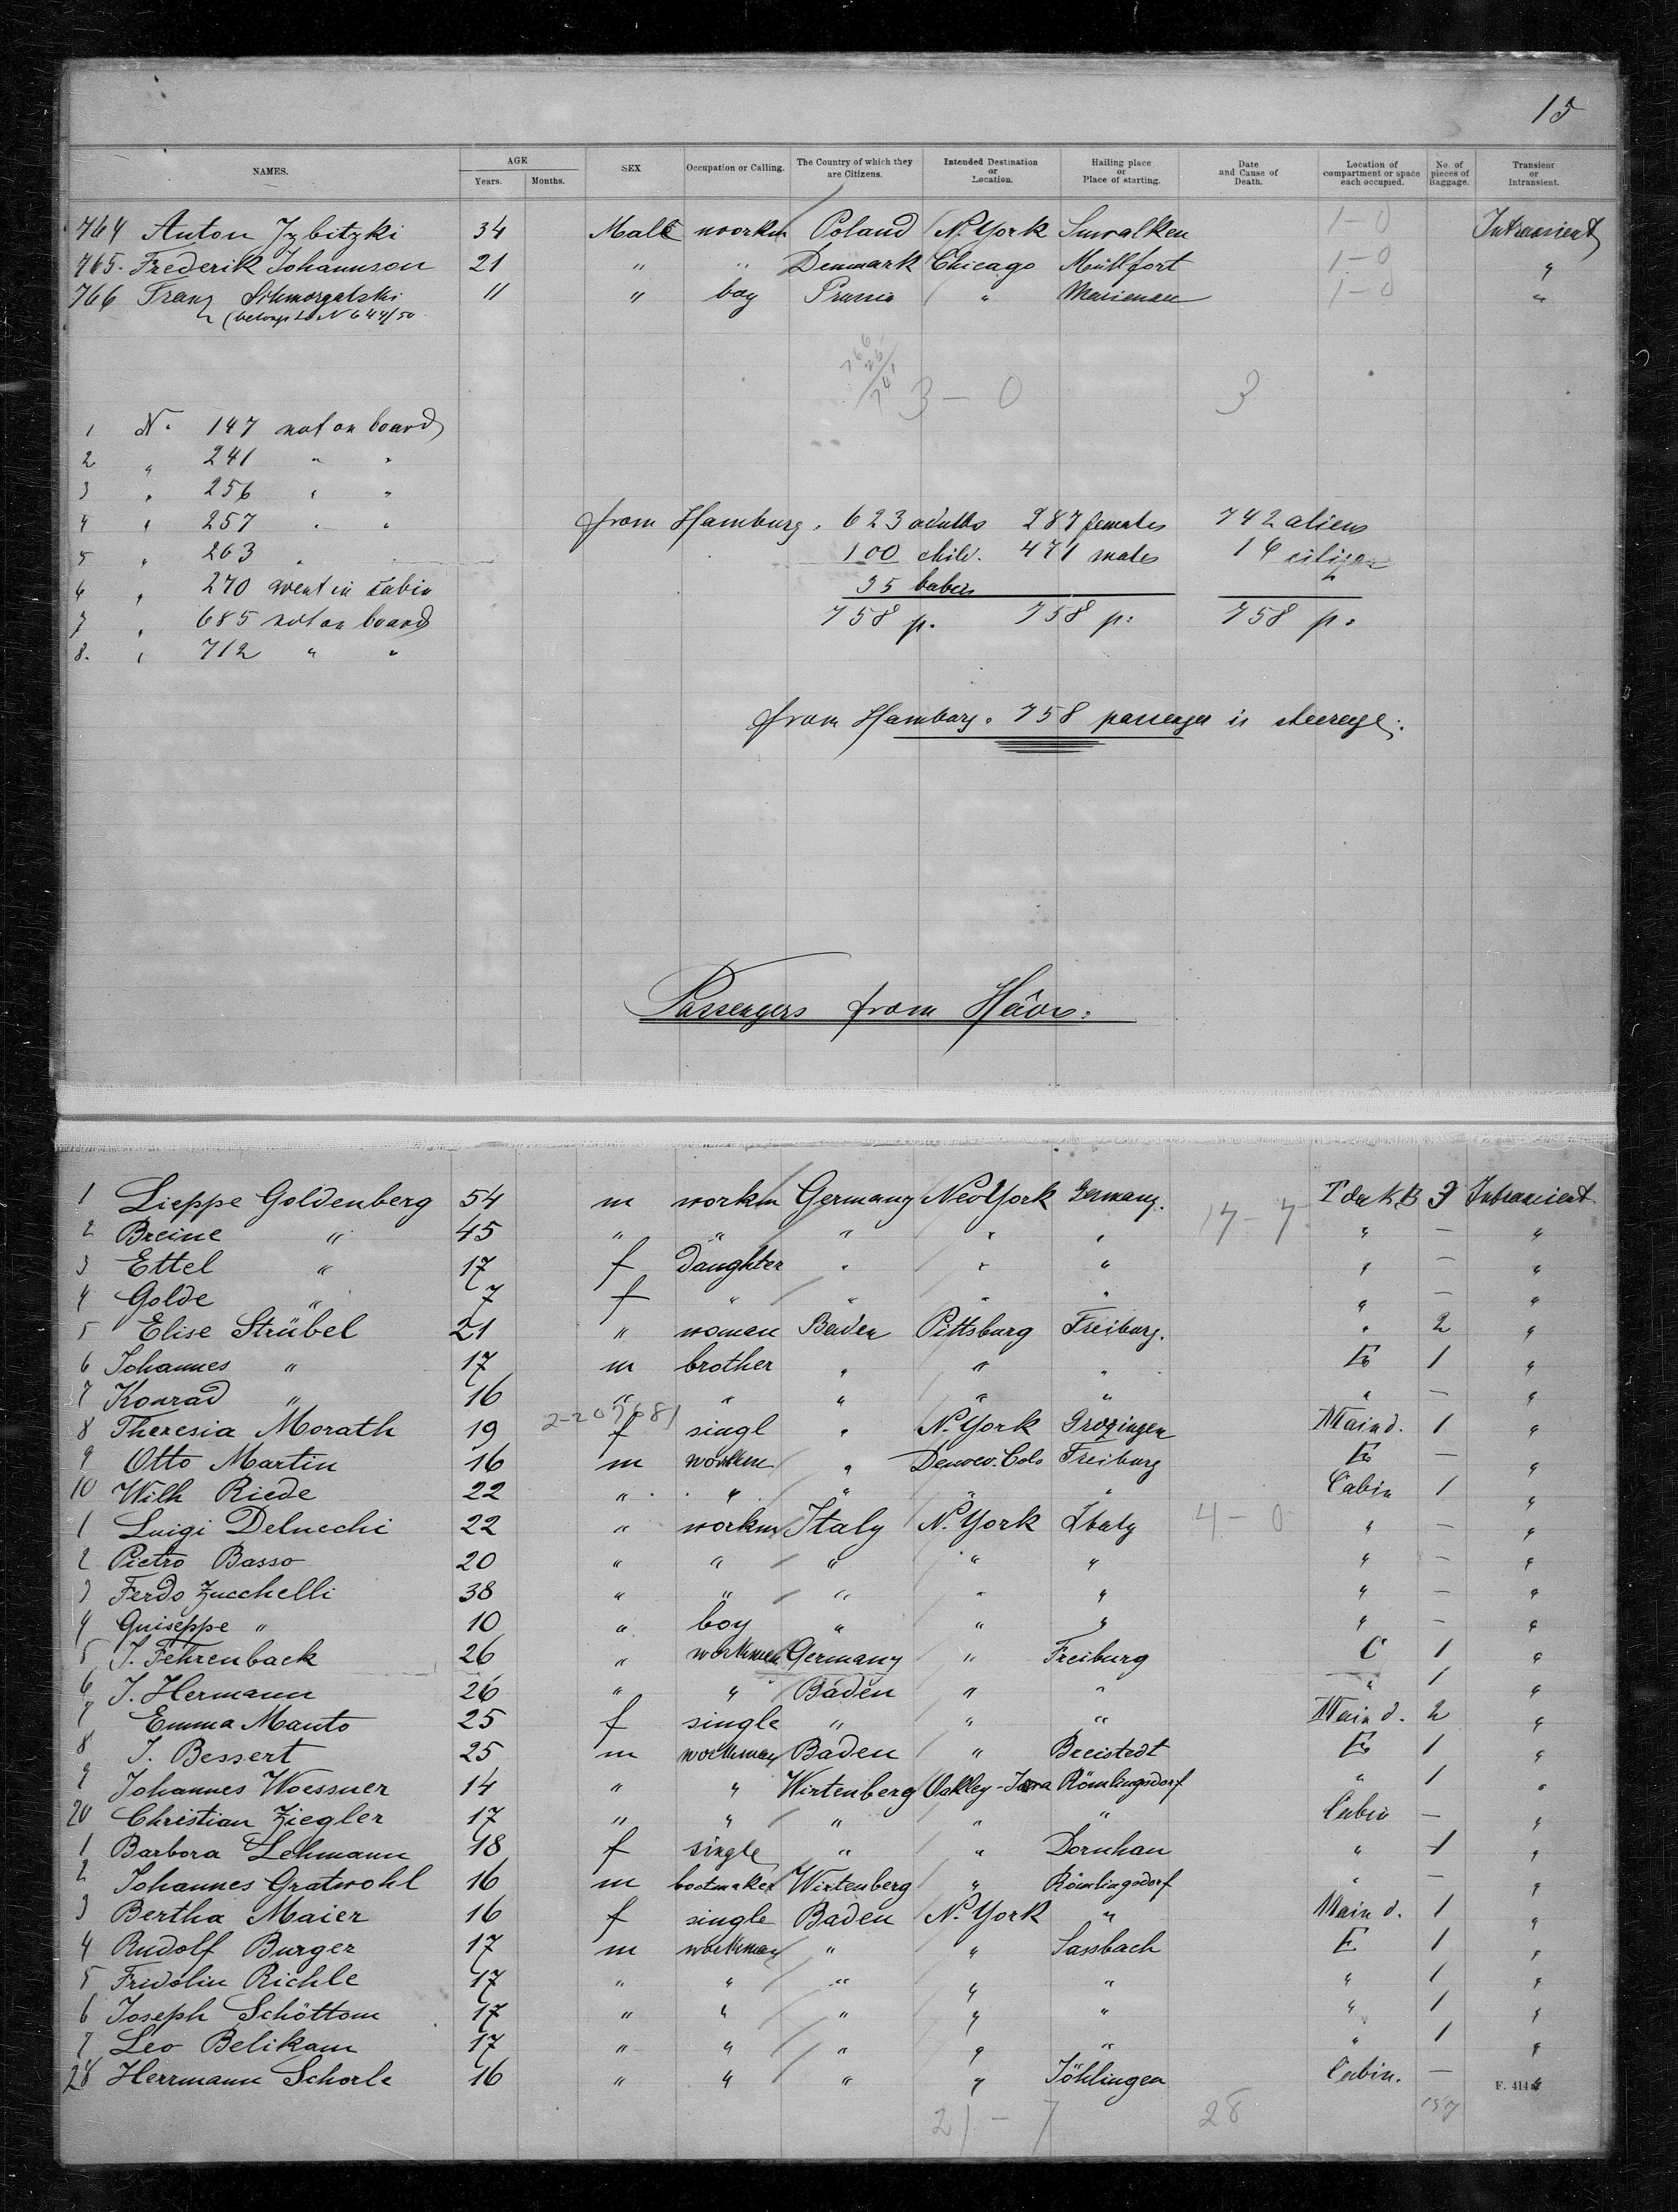 15
NAMES. AGE Years. Months. SEX Occupation or Calling. The Country of which they are Citizens. Intended Destination or Location. Hailing place or Place of starting. Date and Cause of Death. Location of compartment or space each occupied. No. of pieces of Baggage. Transient or Intransient.
764 Anton Jzbitzki 34 Male workm Poland N. York Suwalken 1-0 Intransient
765. Frederik Johannson 21 " " Denmark Chicago 1-0 "
766 Franz 11 " boy Prussia " Marienau 1-0 "
(belongs to N 644/50
766
26
741 3-0 3
1 N. 147 not on board
2 " 241 " "
3 " 256 " "
4 " 257 " " from Hamburg. 623 adults 287 females 742 aliens
5 " 263 " 100 child. 471 males 16 citizen
6 " 270 went in Cabin 35 babies
7 " 685 not on board 758 p. 758 p. 758 p.
8. " 712 " "
from Hamburg. 758 passenger in steerage.
Passengers from Hâvre.
1 Lieppe Goldenberg 54 m workm Germany New York Germany. 3 Intransient
2 Breine " 45 " " " " " " — "
3 Ettel " 17 f daughter " " " " — "
4 Golde " 7 f " " " " " — "
5 Elise Strübel 21 " woman Baden Pittsburg Freiburg. " 2 "
6 Johannes " 17 m brother " " " E 1 "
7 Konrad " 16 " " " " " " — "
8 Theresia Morath 19 2-207681 f singl " N. York Grozingen Main d. 1 "
9 Otto Martin 16 m workm " Denver. Colo Freiburg E — "
10 Wilh Riede 22 " " " " " Cabin 1 "
1 Luigi Delucchi 22 " workm Italy N. York Italy 4-0 " — "
2 Pietro Basso 20 " " " " " " — "
3 Ferdo Zucchelli 38 " " " " " " — "
4 Guiseppe " 10 " boy " " " " — "
5 J. Fehrenback 26 " workman Germany " Freiburg C 1 "
6 J. Hermann 26 " " Baden " " " 1 "
7 Emma Manto 25 f single " " " Main d. 2 "
8 J. Bessert 25 m workman Baden " Breistedt E 1 "
9 Johannes Woessner 14 " " Wirtenberg Oakley-Iova Römlingsdorf " 1 "
20 Christian Ziegler 17 " " " " " Cabin — "
1 Barbora Lehmann 18 f single " " Dornhan " 1 "
2 Johannes Gratwohl 16 m bootmaker Wirtenberg " Römlingsdorf " — "
3 Bertha Maier 16 f single Baden N. York " Main d. 1 "
4 Rudolf Burger 17 m workman " " Sassbach E 1 "
5 Fridolin Richle 17 " " " " " " 1 "
6 Joseph Schöttom 17 " " " " " " 1 "
7 Leo Belikam 17 " " " " " " 1 "
28 Herrmann Schorle 16 " " " " Jöhlingen Cabin. — "
F. 414
21-7 28 157